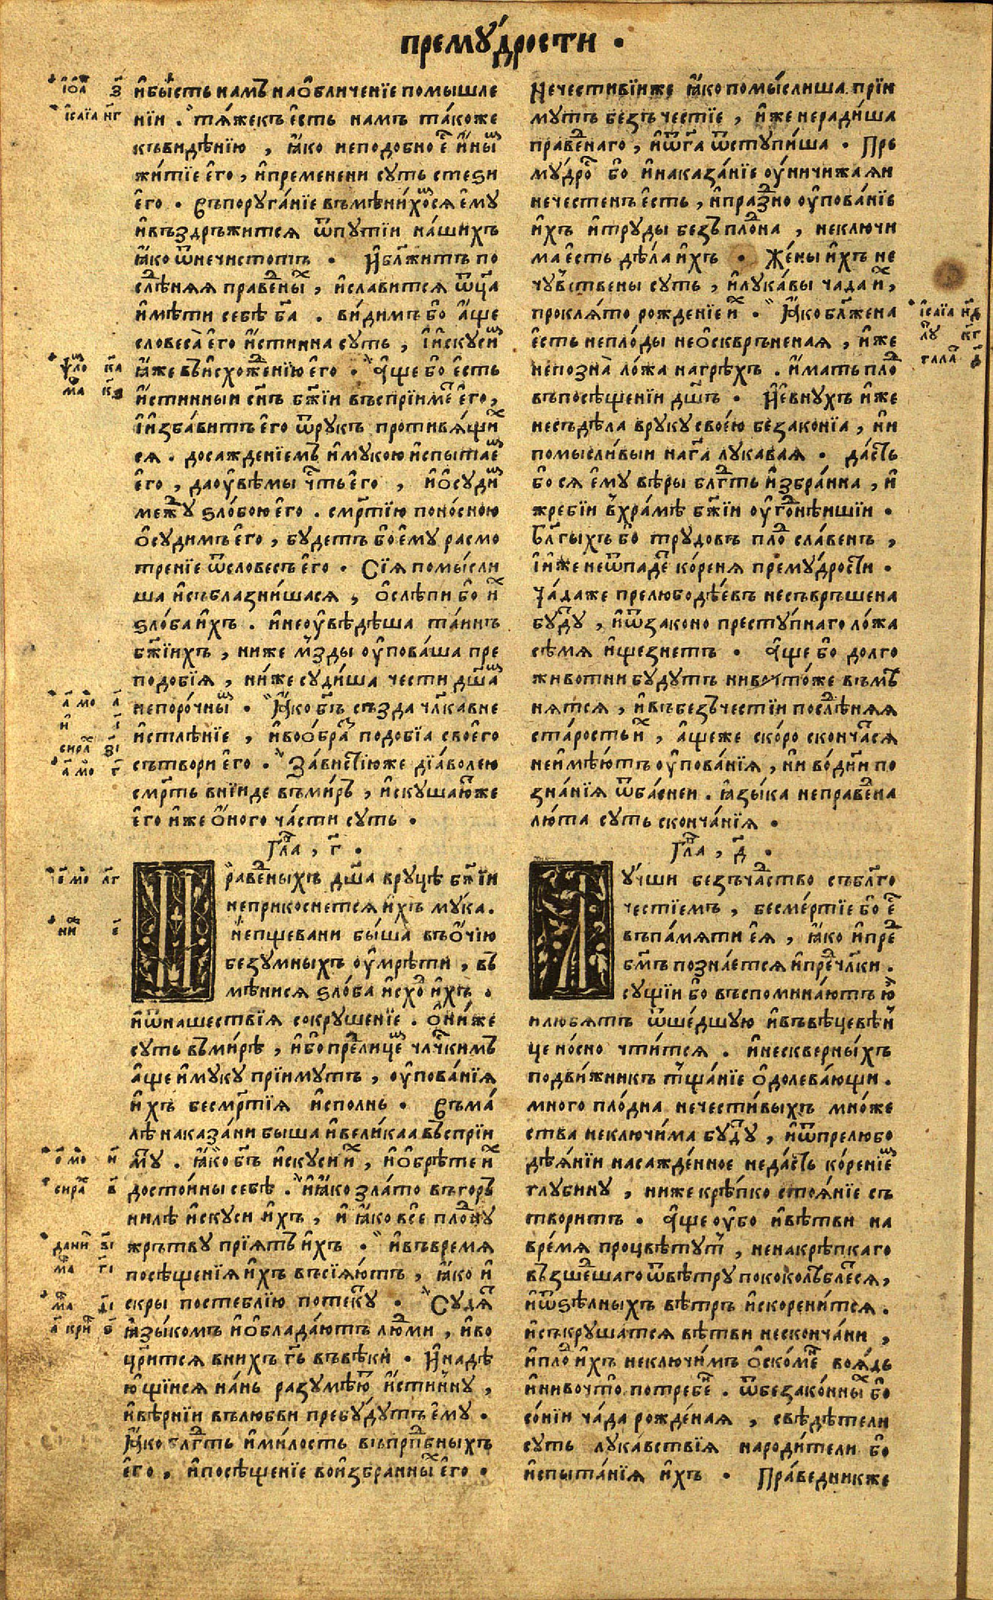 премꙋ́дрости ·
и҆бы́сть намъ на о҆бличе́нїе помышле
нїи . тѧ́жекъ є҆сть намъ та́коже
къ ви́дѣнїю , ꙗ҆́ко неподобно є҆ и҆ны
жи́тїе є҆го̀ , и҆ пременени сꙋть стеѕи
є҆го̀ . въ порꙋга́нїе въмѣни́хомсѧ є҆мꙋ
и҆ въздръ́житсѧ ѿ пꙋтїи на́шихъ
ꙗ҆́ко ѿ нечисто́тъ . И҆ бл҃жи́тъ по
слѣ́днѧѧ пра́ведны , и҆ сла́витсѧ ѿц҃а
и҆мѣти себѣ̀ б҃а . ви́димъ бо а҆́ще
словеса̀ є҆го̀ и҆́стинна сꙋть , и҆ и҆скꙋси
ꙗ҆́же въ и҆схожде́нїю є҆го̀ . а҆́ще бо є҆сть
и҆́стинныи сн҃ъ бж҃їи въспрїиме є҆го̀ ,
и҆ и҆зба́витъ є҆го̀ ѿ рꙋкъ противѧ́щи
сѧ . досажде́нїемъ и҆ мꙋ́кою и҆спы́тае
є҆го̀ , да ᲂу҆вѣмы чⷭ҇ть є҆го̀ , и҆ ѻ҆сꙋ́ди
межꙋ ѕло́бою є҆го̀ . сме́ртїю поно́сною
ѻ҆сꙋ́димъ є҆го̀ , бꙋ́детъ бо є҆мꙋ расмо
тре́нїе ѿ слове́съ є҆го̀ . Сїѧ̀ помы́сли
ша и҆ съблазни́шасѧ , ѻ҆слѣпѝ бо и҆
ѕло́ба и҆хъ . и҆ не ᲂу҆вѣ́дѣша та́инъ
бж҃їихъ , ни́же мзды ᲂу҆пова́ша пре
подо́бїѧ , ни́же сꙋди́ша че́сти дш҃а
непоро́чны . Ꙗ҆́ко б҃ъ създа̀ чл҃ка в не
и҆стлѣ́нїе , и҆ во ѻ҆бра подо́бїѧ своего̀
сътворѝ є҆го̀ . За́вистїю же дїа́волею
сме́рть вни́де въ ми́ръ , и҆скꙋша́ю же
є҆го̀ и҆́же ѻ҆́ного ча́сти сꙋть .
Гла , г҃ .
Пра́ведныхъ дш҃а в рꙋцѣ бж҃їи
неприкоснетсѧ и҆́хъ мꙋ́ка .
непщева́ни бы́ша въ ѻ҆́чїю
безꙋ́мныхъ ᲂу҆мрѣ́ти , въ
мѣни́сѧ ѕло́ба и҆схо и҆́хъ .
и҆ ѿ наше́ствїѧ сокрꙋше́нїе . ѻ҆ни́ же
сꙋть въ ми́рѣ , и҆бо прелицем чл҃чкимъ
а҆́ще и҆ мꙋ́кꙋ прїи́мꙋтъ , ᲂу҆пова́нїѧ
и҆́хъ бесме́ртїѧ и҆спо́лнь . Въ ма́
лѣ нака́зани бы́ша и҆ вели́каа въсприи
мꙋ . ꙗ҆́ко б҃ъ и҆скꙋси и҆ , и҆ ѻ҆брѣ́те и҆
досто́ины себѣ̀ . и҆ ꙗ҆́ко зла́то въ горъ
ни́лѣ и҆скꙋси и҆́хъ , и҆ ꙗ҆́ко все пло́днꙋ
жрътвꙋ прїѧ́тъ и҆́хъ . и҆ въ вре́мѧ
посѣще́нїѧ и҆́хъ въсїѧ́ютъ , ꙗ҆́ко и҆
скры по сте́блїю потекꙋ . Сꙋ́дѧ
ꙗ҆зы́комъ и҆ ѻ҆блада́ютъ людми , и҆ во
цр҃итсѧ в ни́хъ гь҃ въ вѣ́ки . И҆ надѣ
ю҆щїисѧ на́нь разꙋмѣ́ю и҆́стиннꙋ ,
и҆ вѣ́рнїи въ любви пребꙋ́дꙋтъ є҆мꙋ̀ .
Ꙗ҆́ко бл҃гть и҆ ми́лость въ прпⷣбныхъ
є҆го̀ , и҆ посѣще́нїе во и҆збра́нны є҆го̀ .
Нечести́вїи же ꙗ҆́ко помы́слиша прїи
мꙋтъ безъче́стїе , и҆́же неради́ша
пра́веднаго , и҆ ѿ г҃а ѿстꙋпи́ша . Пре
мꙋ́дро бо и҆ наказа́нїе ᲂу҆ничижа́ѧи
нечестенъ є҆сть , и҆ пра́здно ᲂу҆пова́нїе
и҆́хъ и҆ трꙋды̀ безъ пло́да , неключи
ма є҆сть дѣла̀ и҆́хъ . Жены̀ и҆́хъ не
чꙋ́вствены сꙋть , и҆ лꙋка́вы ча́да и҆ ,
прокля́то рожде́нїе и҆ . Ꙗ҆́ко бл҃же́на
є҆сть непло́ды неѻ҆сквръне́наѧ , и҆́же
непозна̀ ло́жа на грѣ́хъ . и҆́мать пло
въ посѣще́нїи дш҃ъ . И҆ є҆внꙋхъ и҆́же
несъдѣла в рꙋкꙋ своею̀ безако́нїа , ни
помысли́выи на г҃а лꙋка́ваѧ . да́сть
бо сѧ є҆мꙋ вѣ́ры бл҃гть и҆збра́нна , и҆
жре́бїи в хра́мѣ бж҃їи ᲂу҆го́днѣишїи .
Бл҃гы́хъ бо трꙋдо́въ пло сла́венъ ,
и҆ и҆́же неѿпаде ко́ренѧ премꙋ́дрости .
Ча́да же прелюбодѣ́евъ несъвръше́на
бꙋ́дꙋ , и҆ ѿ законо престꙋ́пнаго ло́жа
сѣ́мѧ и҆щезнетъ . а҆́ще бо до́лго
живо́тни бꙋ́дꙋтъ ни во что́же въмъ
нѧтсѧ , и҆ въ безъче́стїи послѣ́днѧѧ
ста́рость и҆ , а҆́ще же ско́ро сконча́сѧ
не и҆мѣ́ютъ ᲂу҆пова́нїѧ , ни во дн҃и по
зна́нїѧ ѿ ба́снеи . ꙗ҆зы́ка непра́ведна
лю́та сꙋть сконча́нїѧ .
Гла , д҃ .
Лꙋ́чши безъча́дство съ бл҃го
че́стїемъ , бесме́ртїе бо є҆
въ па́мѧти є҆ѧ̀ , ꙗ҆́ко и҆ пре
бг҃мъ позна́етсѧ и҆ пречл҃ки .
сꙋщїи бо въспомина́ютъ ю҆
и҆ лю́бѧтъ ѿше́дшꙋю и҆ въ вѣ́це вѣне
це но́сно чти́тсѧ . и҆ нескве́рныхъ
подви́жникъ тща́нїе ѻ҆долева́ющи .
мно́го пло́дна нечести́выхъ мно́же
ства неключи́ма бꙋ́дꙋ , и҆ ѿ прелюбо
дѣ́ѧнїи насажде́нное неда́сть коре́нїем
глꙋбинꙋ , ни́же крѣ́пко стоѧ́нїе съ
твори́тъ . а҆́ще ᲂу҆бо и҆ вѣ́тви на
вре́мѧ процвѣтꙋт , не на крѣ́пкаго
възше́дшаго ѿ вѣтрꙋ поколѣ́блесѧ ,
и҆ ѿ ѕѣ́лныхъ вѣ́тръ и҆скоре́нитсѧ .
и҆ съкрꙋша́тсѧ вѣ́тви несконча́ни ,
и҆ пло и҆́хъ неключи́мъ ѻ҆ско́ме воѧ́дь
и҆ ни во чт́о потребе . ѿ безако́нны бо
со́нїи ча́да рожде́наѧ , свѣдѣ́тели
сꙋть лꙋка́вствїѧ на роди́тели бо
и҆спыта́нїѧ и҆́хъ . Пра́ведник же